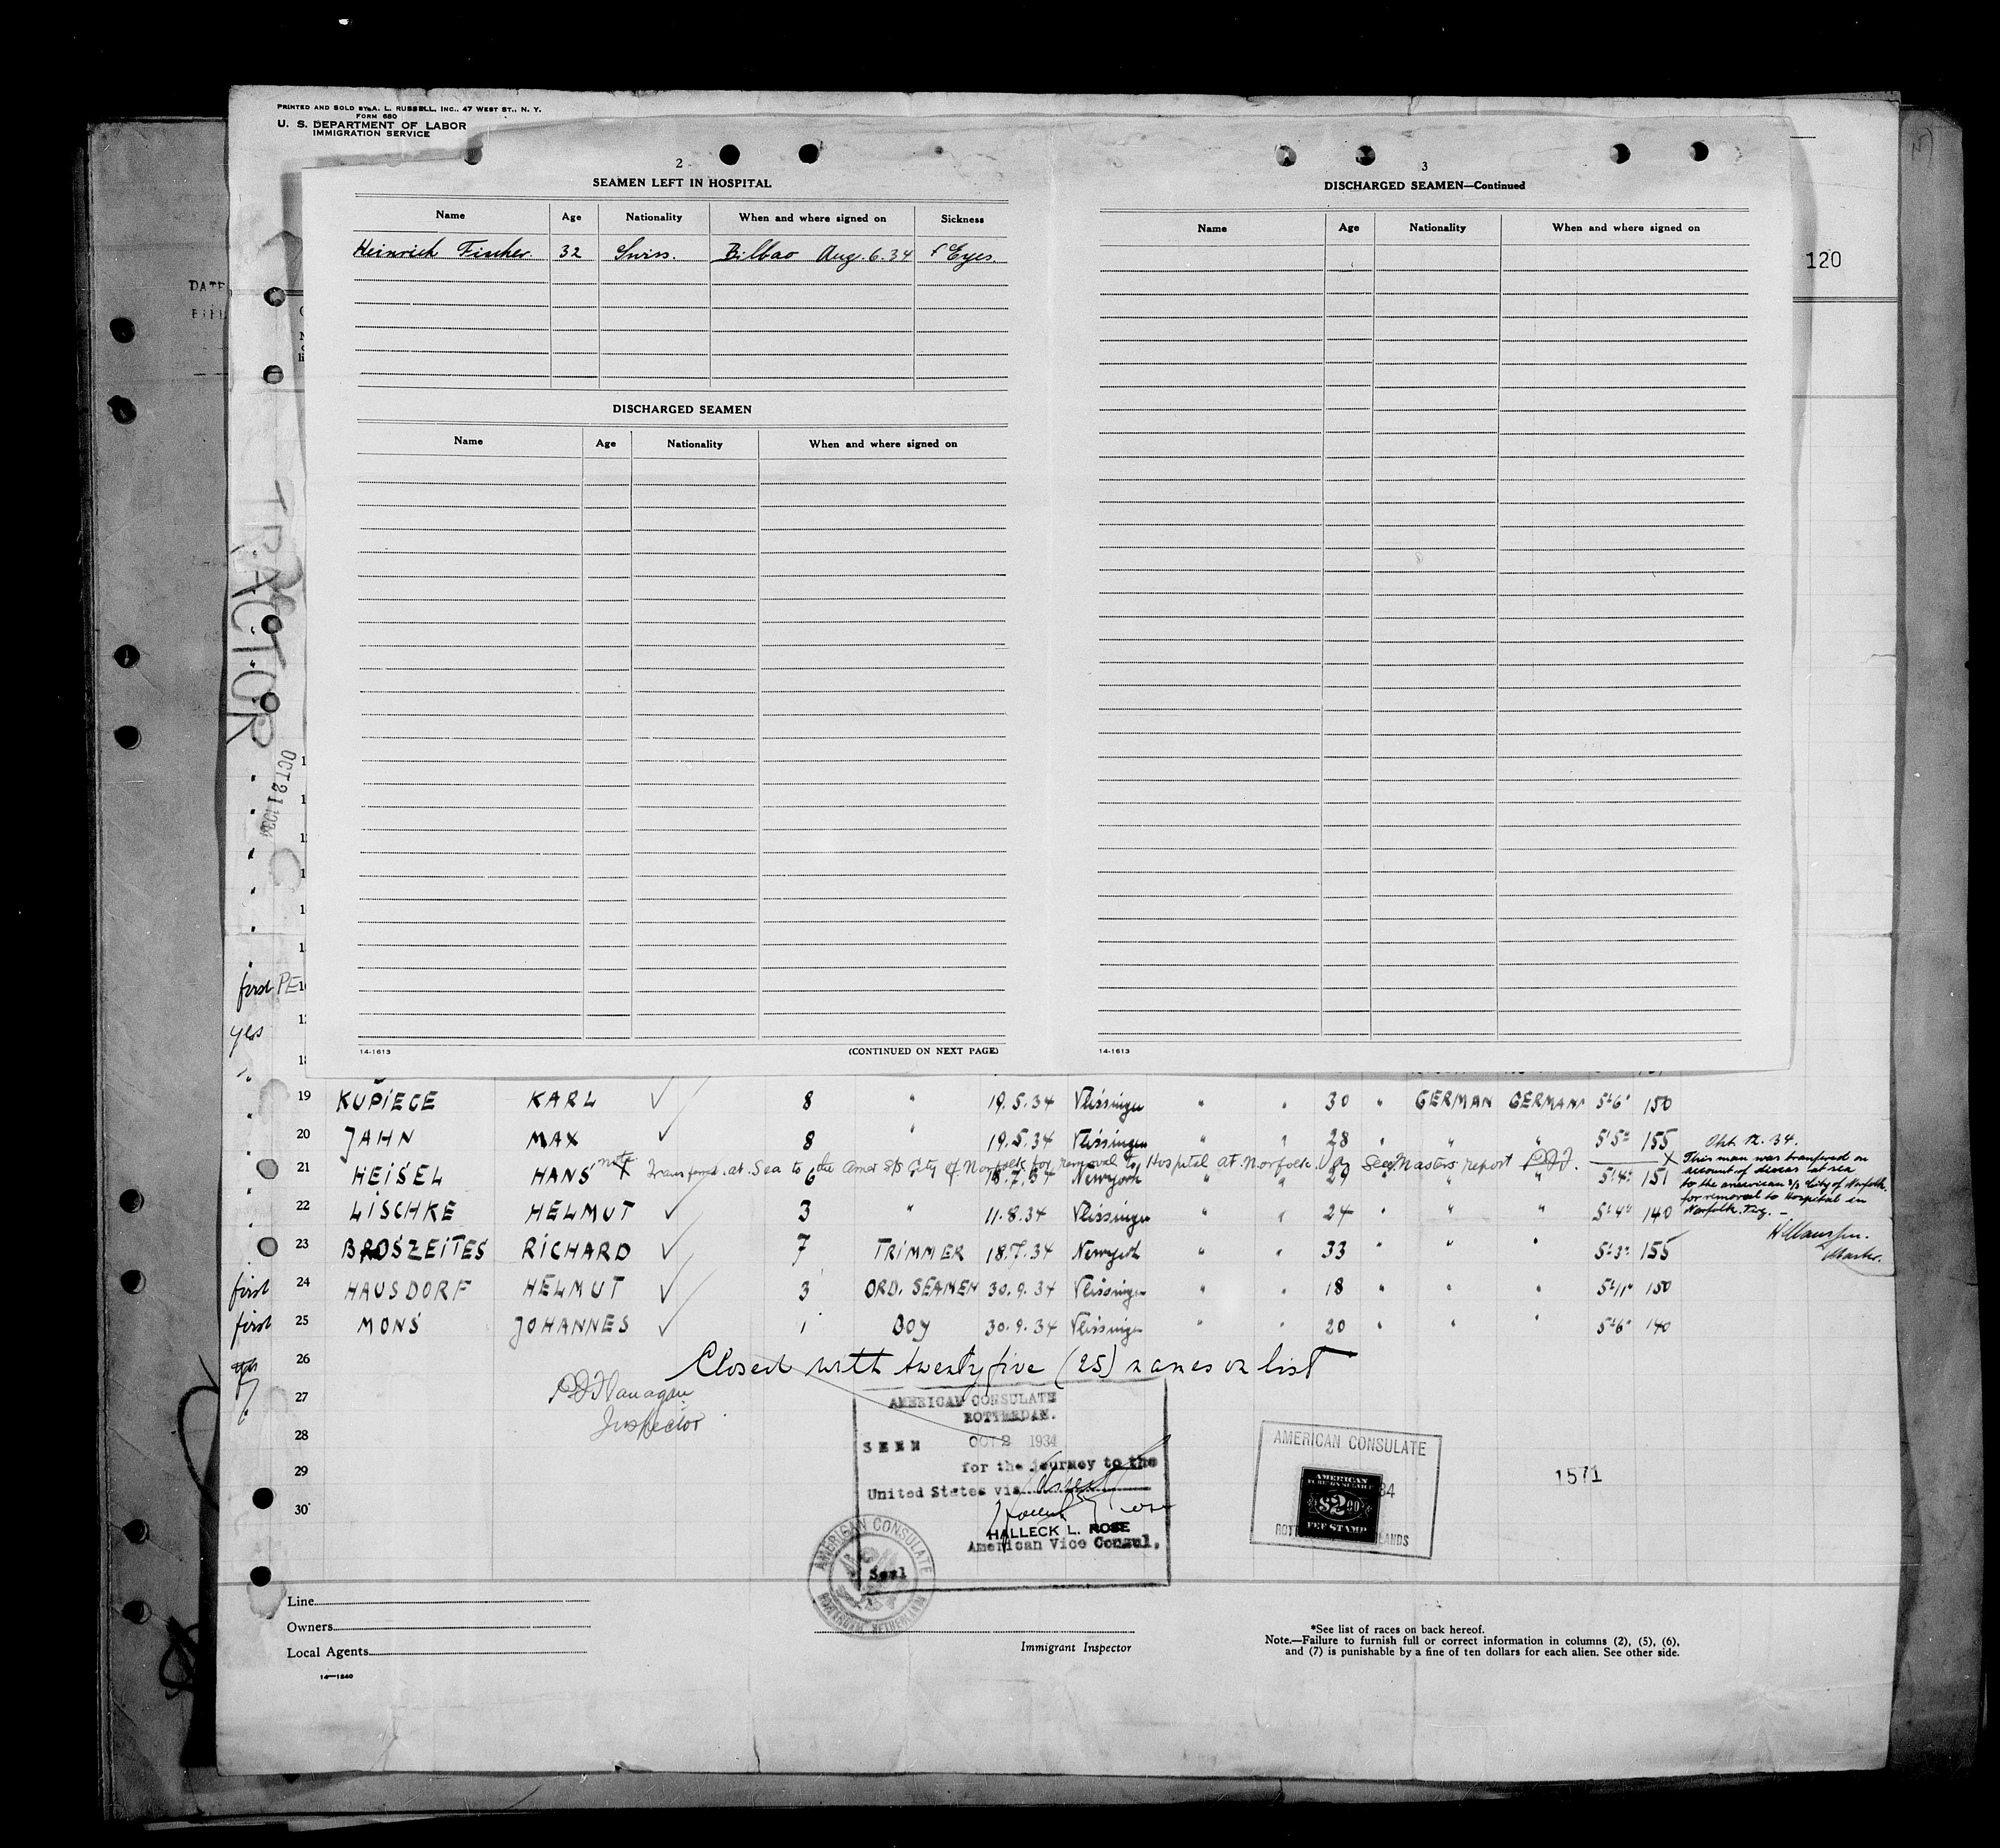 PRINTED AND SOLD BY A. L. RUSSELL, INC., 47 WEST ST., N. Y.
FORM 680
U. S. DEPARTMENT OF LABOR
IMMIGRATION SERVICE
2
SEAMEN LEFT IN HOSPITAL
Name Age Nationality When and where signed on Sickness
Heinrich Fischer 32 Swiss. Bilbao Aug. 6. 34 Eyes.
DISCHARGED SEAMEN
Name Age Nationality When and where signed on
14-1613 (CONTINUED ON NEXT PAGE)
3
DISCHARGED SEAMEN—Continued
Name Age Nationality When and where signed on
14-1613
120
DATE
TRACTOR
OCT 21 1934
first PE
yes
19 KUPIEGE KARL 8 " 19.5.34 Vlissingen " " 30 " GERMAN GERMAN 5'6" 150
20 JAHN MAX 8 " 19.5.34 Vlissingen " " 28 " " " 5'5" 155
note Transferred at Sea to the Amer S/S City of Norfolk for removal to Hospital at Norfolk. Va See Masters report
21 HEISEL HANS X 6 18.7.34 Newyork " " 29 " " 5'4" 151
Okt. 12. 34.
X This man was transferred on
account of at sea
to the american S/S City of Norfolk.
for removal to Hospital in
Norfolk.
Master.
22 LISCHKE HELMUT 3 " 11.8.34 Vlissingen " " 24 " " " 5'4" 140
23 BROSZEITES RICHARD 7 TRIMMER 18.7.34 Newyork " " 33 " " " 5'3" 155
first 24 HAUSDORF HELMUT 3 ORD. SEAMEN 30.9.34 Vlissingen " " 18 " " " 5'11" 150
first 25 MONS JOHANNES 1 BOY 30.9.34 Vlissingen " " 20 " " " 5'6" 140
26 Closed with twenty five (25) names on list
27 P J Flanagan
Inspector
28
29
30
AMERICAN CONSULATE
ROTTERDAM.
SEEN OCT 2 1934
for the journey to the
United States via
HALLECK L. ROSE
American Vice Consul.
Seal
AMERICAN CONSULATE
ROTTERDAM, NETHERLANDS
AMERICAN CONSULATE
34
AMERICAN
$2.00
FEE STAMP
1571
Line
Owners
Local Agents
14—1240
Immigrant Inspector
*See list of races on back hereof.
Note.—Failure to furnish full or correct information in columns (2), (5), (6),
and (7) is punishable by a fine of ten dollars for each alien. See other side.